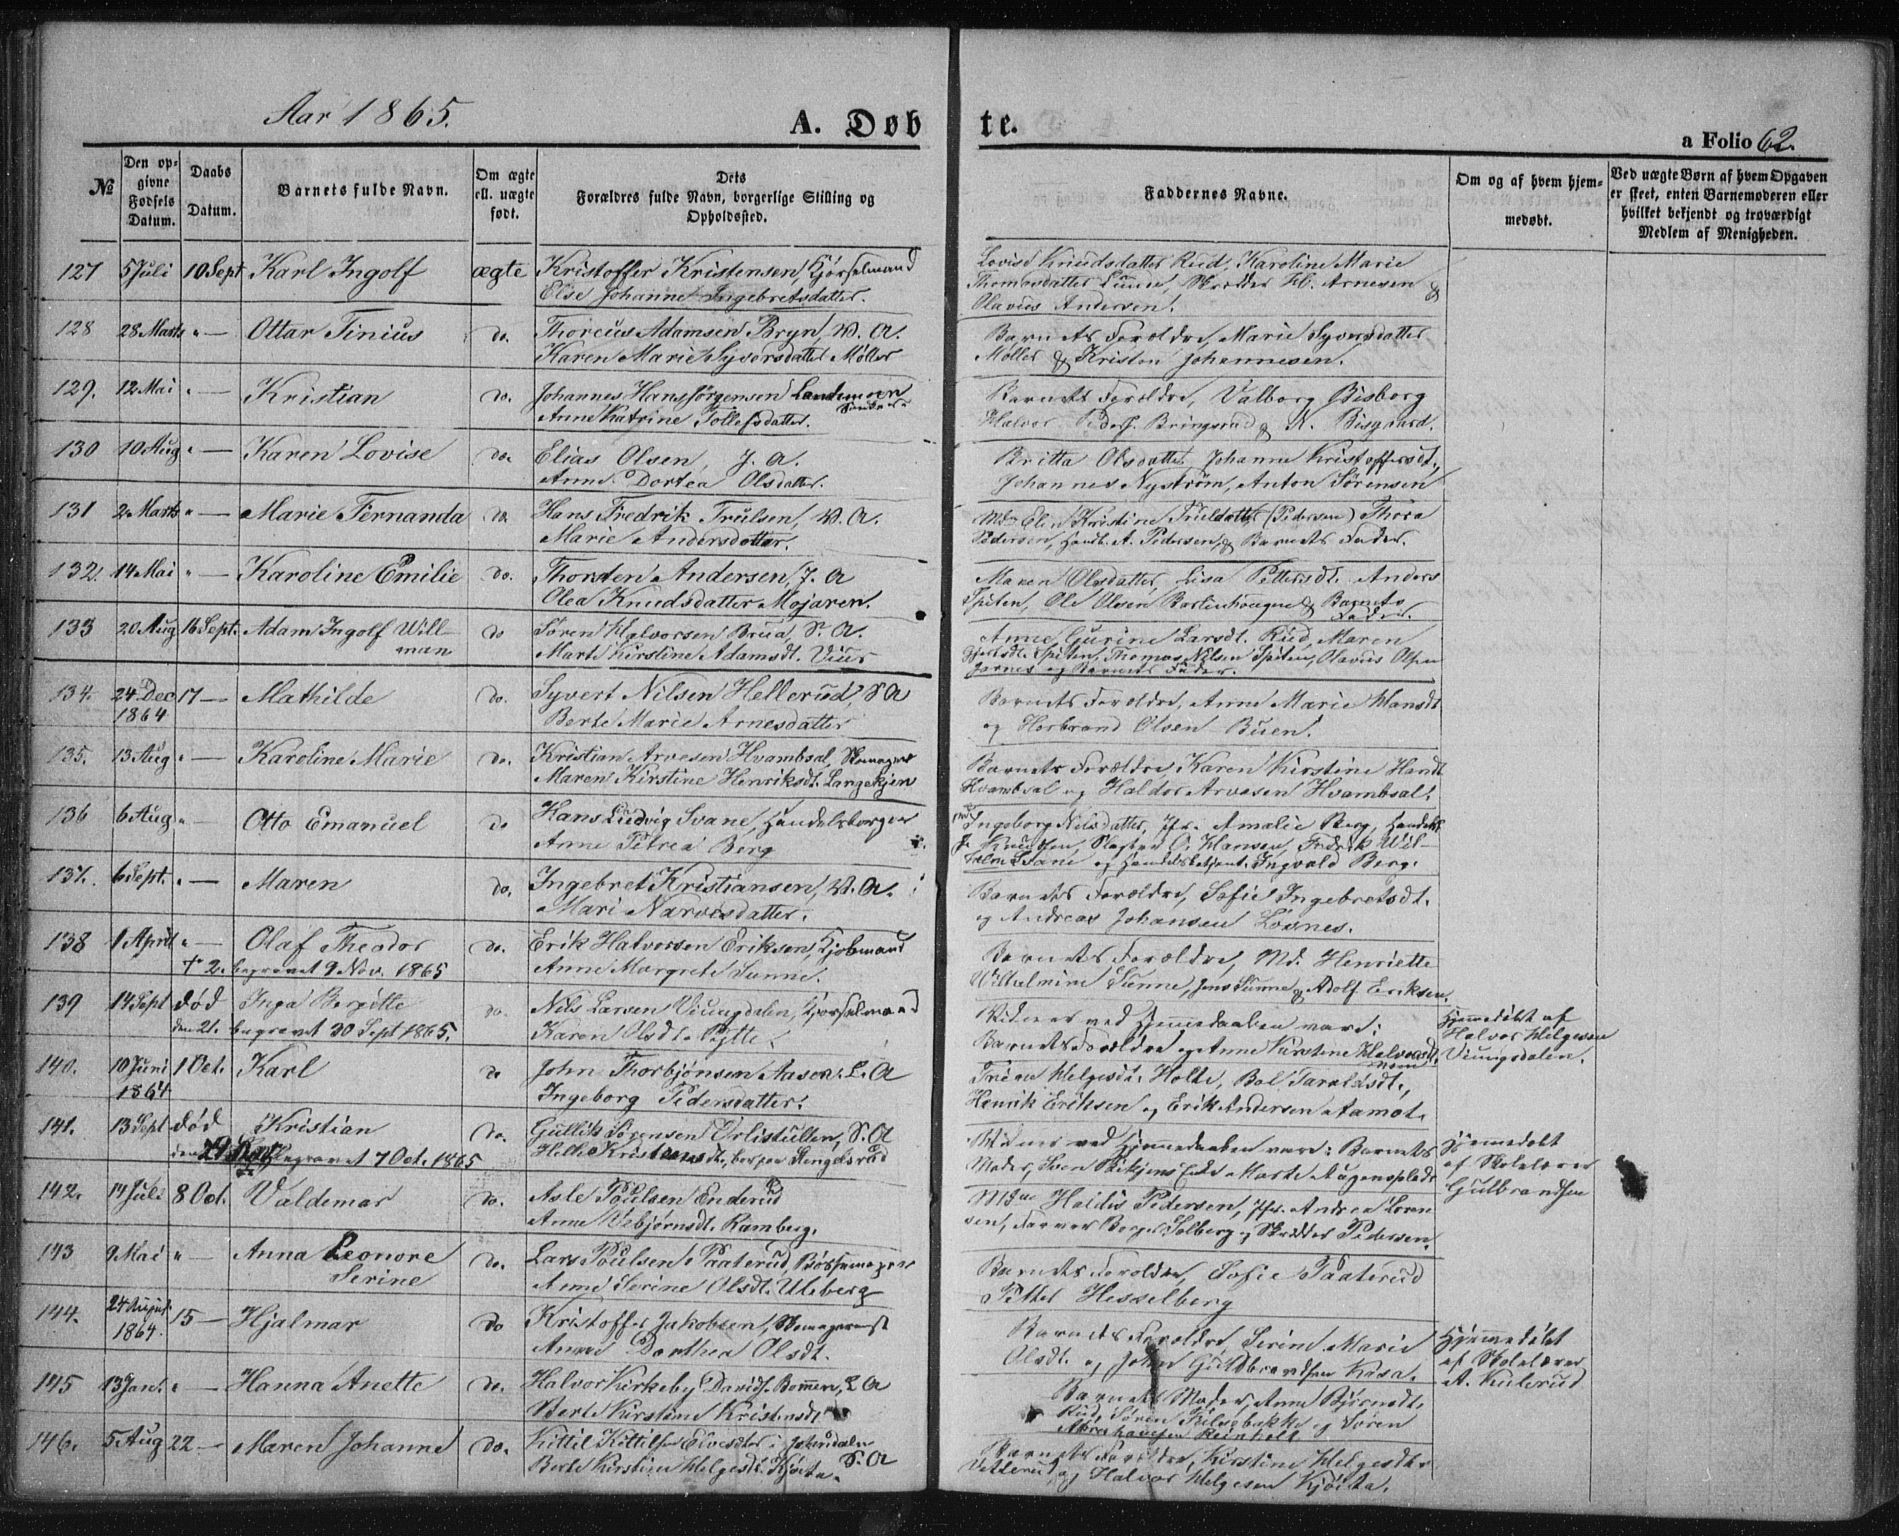 Aar 1865.
A. Døbte.
a Folio 62.
№
Den opgivne Fødsels Datum.
Daabs Datum.
Barnets fulde Navn.
Om ægte ell. uægte født.
Dets Forældres fulde Navn, borgerlige Stilling og Opholdssted.
Faddernes Navne.
Om og af hvem hjemmedøbt.
Ved uægte Børn af hvem Opgaven er skeet, enten Barnemoderen eller hvilket bekjendt og troværdigt Medlem af Menigheden.
127 5 Juli 10 Sept Karl Ingolf ægte Kristoffer Kristensen, Kjørselmand
Else Johanne Ingebretsdatter.
Lovise Knudsdatter Rud, Karoline Marie
Thomasdatter Lunde, H. Arnesen &
Olavus Andersen.
128 28 Marts " — Ottar Tinius do. Thoreus Adamsen Bryn, W. A.
Karen Marie Syversdatter Møller
Barnets Forældre, Marie Syversdatter
Møller & Kristen Johannesen.
129. 12 Mai " — Kristian do. Johannes Hans Jørgensen Landemoen
Anne Katrine Tollefsdatter.
Barnets Forældre, Valborg Bisborg
Halvor Peders. Bringsrud & K. Bisgaard.
130 10 Aug " — Karen Lovise do. Elias Olsen, J. A.
Anne Dortea Olsdatter.
Britta Olsdatter Johanne Kristoffersdt,
Johannes Nystrøm, Anton Sørensen
131 2 Marts " — Marie Fernanda do. Hans Fredrik Trulsen, W. A.
Marie Andersdatter.
Md Elen Kristine Trulsdatter (Pedersen) Thora
Pedersen, Handl. A. Pedersen, & Barnets Fader.
132. 14 Mai " — Karoline Emilie do. Thorsten Andersen, J. A
Olea Knudsdatter Mojaren.
Maren Olsdatter, Lisa Pettersdt. Anders
Spiten, Ole Olsen & Barnets
Fader.
133 20 Aug 16 Sept. Adam Ingolf Willman do Søren Halvorsen Brua, S. A.
Marte Kirstine Adamsdt. Viur
Anne Gurine Larsdt. Rud, Maren
Spiten, Thomas Nilsen Spiten, Olavus Olsen
og Barnets Fader.
134. 24 Dec 1864 17 — Mathilde do. Syvert Nilsen Hellerud, S A
Berte Marie Arnesdatter
Barnets Forældre, Anne Marie Hansdt
og Herbrand Olsen Buen.
135. 13 Aug " — Karoline Marie do. Kristian Arvesen Hvambsal, Skomager
Maren Kirstine Henriksdt. Langekjen
Barnets Forældre Karen Kirstine Handt
Hvambsal og Haldor Arvesen Hvambsal.
136 6 Aug " — Otto Emanuel do Hans Ludvig Svane, Handelsborger
Anne Petrea Berg
Ingeborg Nilsdatter, Jfr. Amalie Berg, Handelsb.
Knudsen, Slagter O. Hansen, Fredrik Wilhelm
Svane og Handelsbetjent Ingvald Berg.
137. 6 Sept. " — Maren do. Ingebret Kristiansen, W. A.
Mari Narvesdatter.
Barnets Forældre, Sofie Ingebretsdt.
og Andreas Johansen Løvnes.
138 1 April " — Olaf Theodor do. Erik Halvorsen Eriksen, Kjøbmand
† 2. begravet 9 Nov. 1865 Anne Margrete Sunne.
Barnets Forældre, Md. Henriette
Wilhelmine Sunne, Jens Sunne & Adolf Eriksen.
139 14 Sept død Inga Bergitte do. Nils Larsen Viungdalen, Kjørselmand
den 21. begravet 30 Sept 1865. Karen Olsdt. Pytte
Vidner ved Hjemmedaaben vare:
Barnets Forældre og Anne Kirstine Halvorsdt.
Hjemmedøbt af
Halvor Helgesen
Viungsdalen.
140. 10 Juni 1864 1 Oct. Karl do John Thorbjønsen Aasen, L. A
Ingeborg Pedersdatter.
Trine Helgesdt. Holte, Bol Taraldsdt.,
Henrik Eriksen og Erik Andersen Aamot.
141. 13 Sept død Kristian do. Gullik Sørensen Ørlistullen, S. A
begravet 7 Oct. 1865 Helle Kristensdt., Sengelsrud
Vidner ved Hjemmedaaben vare: Barnets
Moder, Sven Enke Marte Augensplads
Hjemmedøbt
af Skolelærer
Gulbrandsen
142. 14 Juli 8 Oct. Valdemar do. Asle Poulsen Enderud
Anne Vebjørnsdt. Ramberg.
Haldis Pedersen, Jfr. Andrea Lorensen,
Farver Berger Solberg og Skrædder Pedersen.
143 9 Mai " — Anna Leonore Serine do. Lars Poulsen Paaterud, Bøssemager
Anne Serine Olsdt. Uleberg
Barnets Forældre, Sofie Paaterud
Petter Hesselberg
144. 24 August 1864. 15 — Hjalmar do Kristoffer Jakobsen, Skomagersv.
Anne Dorthea Olsdt.
Barnets Forældre Serine Marie
Olsdt. og Johan Guldbrandsen Kaasa.
Hjemmedøbt
af Skolelærer
A. Kulerud
145 13 Jan. " — Hanna Anette do. Halvor Kirkeby Davids. Bommen, L A
Berte Kirstine Kristensdt
Barnets Moder, Anne Bjørnsdt.
Rud, Søren og Søren
Abrahamsen Reinholt
146. 5 Aug 22 — Maren Johanne do. Kittil Kittilsen i Johnsdalen
Berte Kirstine Helgesdt. Kjøita. S. A
Barnets Forældre, Kirstine Helgesdtr
Vetterud, og Halvor Helgesen Kjøita.